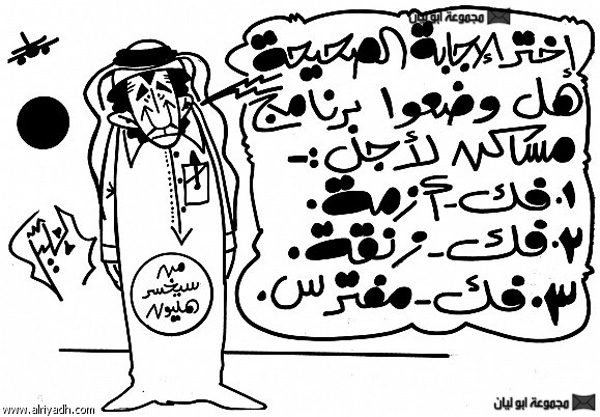 مجموعة ابو ليان
إختر الإجابة الصحيحة
هل وضعوا برنامج
مساكن لأجل :-
١. فك - أزمة.
٢. فك - زنقة.
٣. فك - مفترس.
من
سيخسر
مليون
مجموعة ابو ليان
www.alriyadh.com